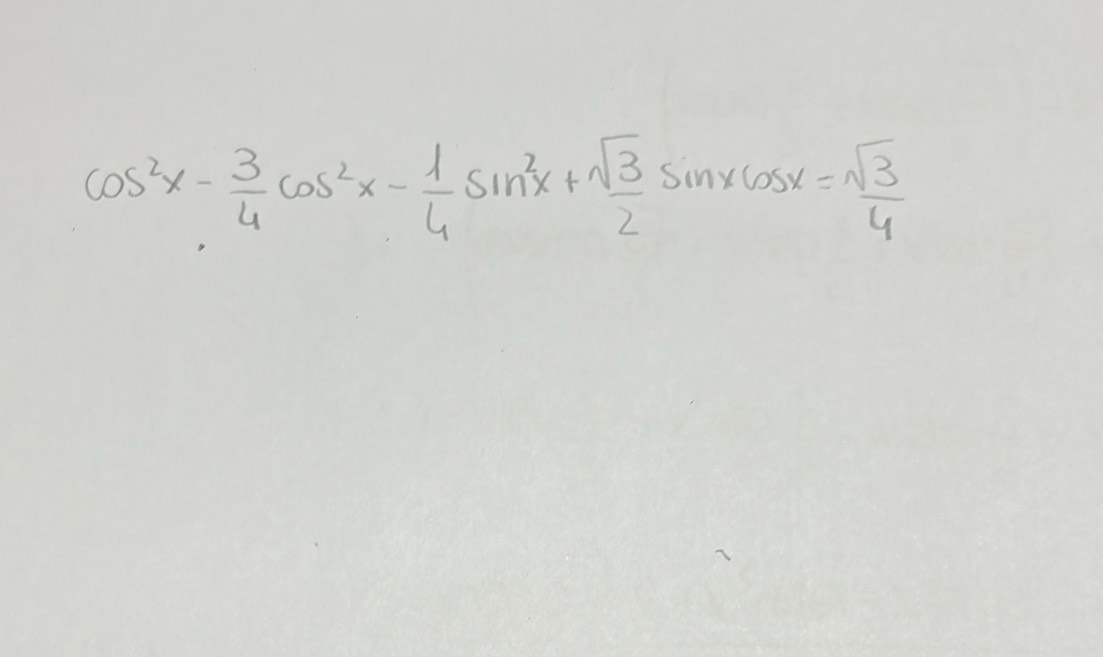 cos²x - 3/4 cos²x - 1/4 sin²x + √3/2 sinx cosx = √3/4